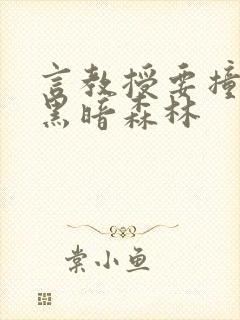 言教授要撞
黑暗森林
棠小鱼